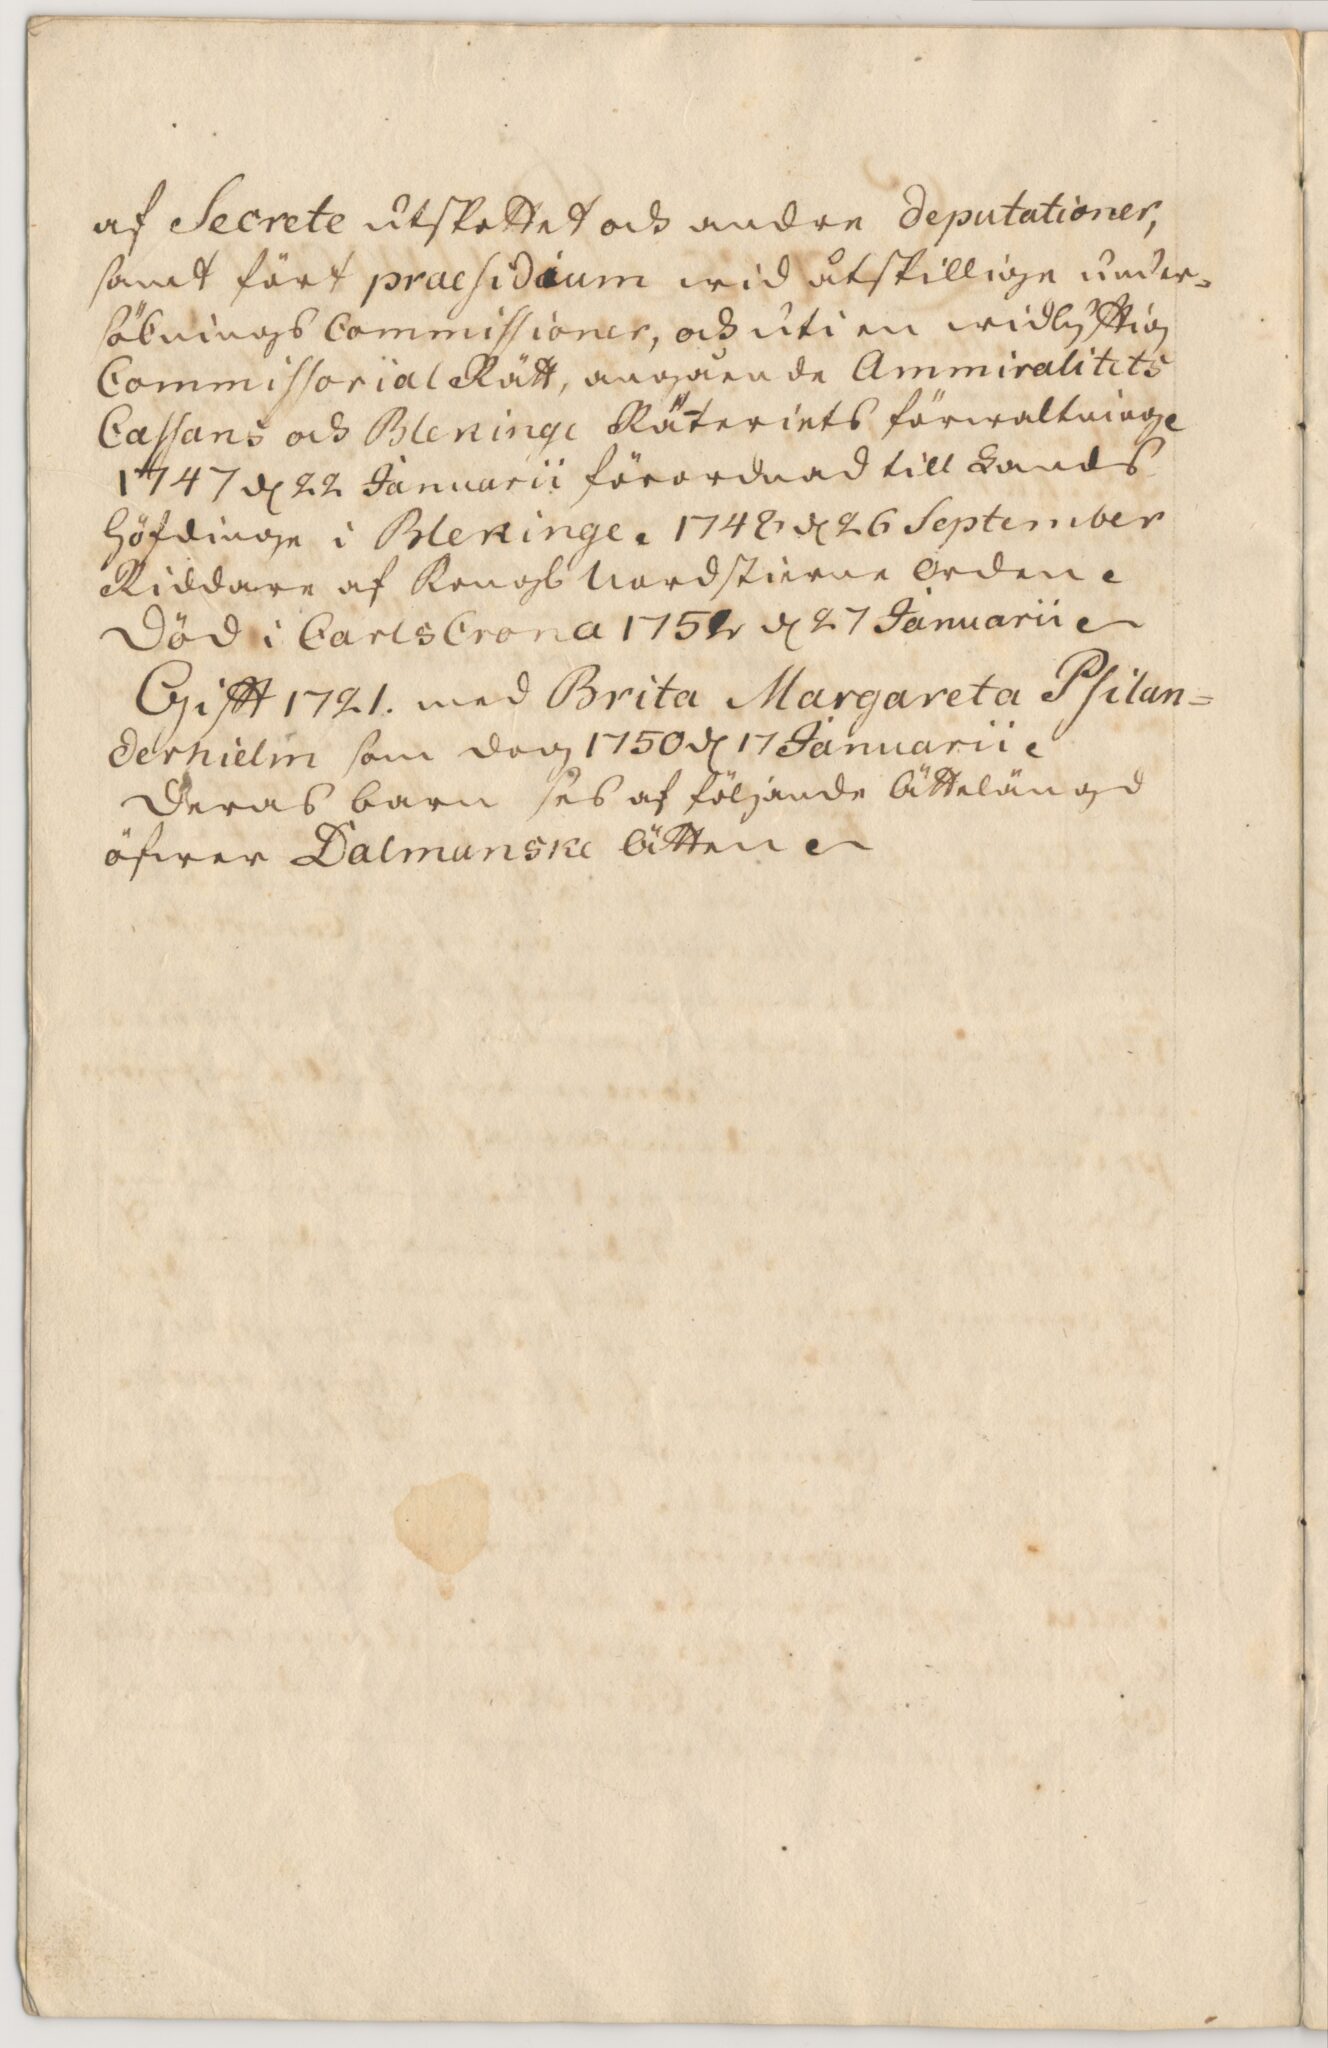 af Secrete Utskottet och andra Deputationer,
samt fört præsidium wid åtskillige under-
söknings Commissioner, och uti en widlyfftig
Commissorial Rätt, angående Ammiralitets
Cassans och Blekinge Räteriets förwaltning.
1747 d 22 Januarii förordnad till Lands
höfdinge i Blekinge. 1748 d 26 September
Riddare af Kongl Nordstierne Orden.
Död i CarlsCrona 1752 d 27 Januarii.
Gifft 1721. med Brita Margareta Psilan=
derhielm som dog 1750 d 17 Januarii.
Deras barn ses af följande ättelängd
öfwer Dalmanske ätten.